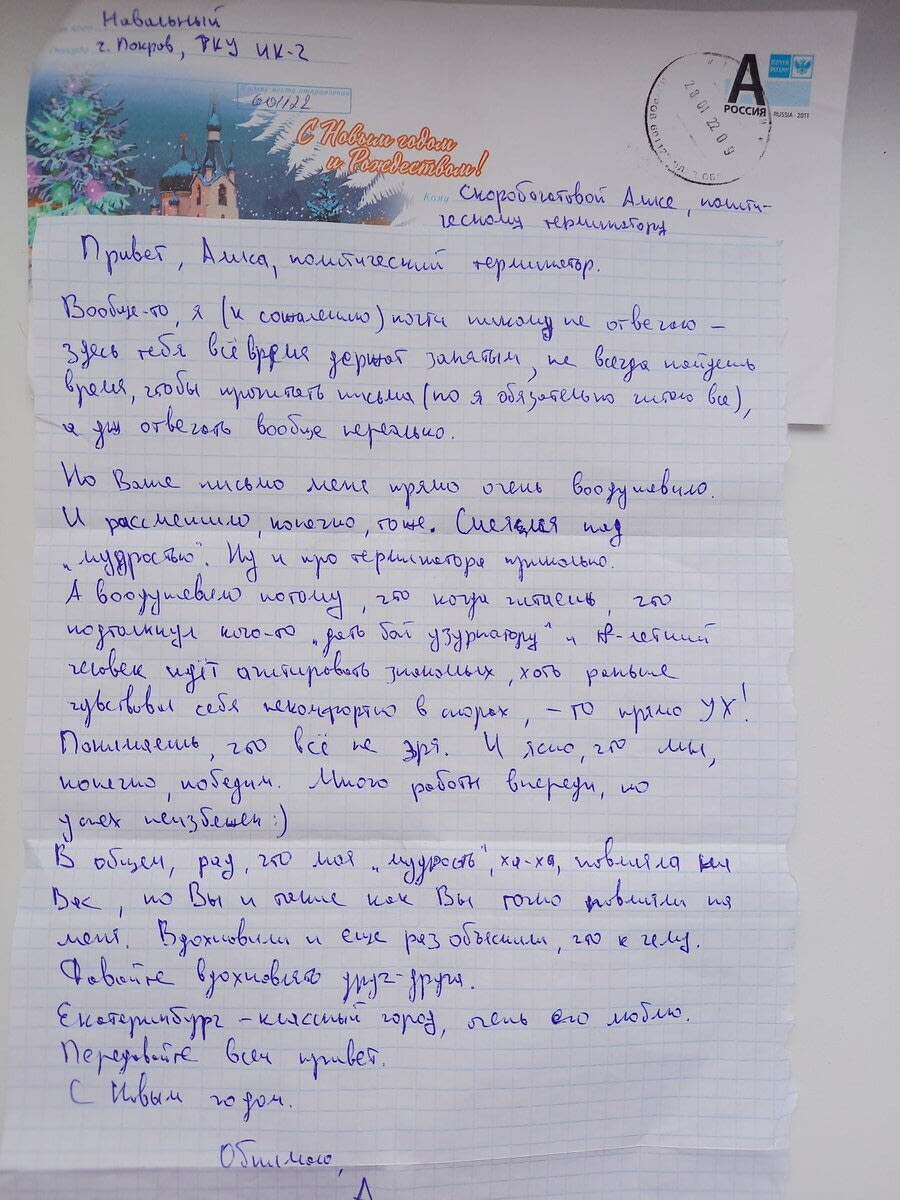 Навальный
г. Покров, ФКУ ИК-2
Индекс места отправления
601122
С Новым годом
и Рождеством!
А
РОССИЯ
ПОЧТА РОССИИ
RUSSIA · 2011
28 01 22 09
Кому Скоробогатовой Алисе, полити-
ческому терминатору
Привет, Алиса, политический терминатор.
Вообще-то, я (к сожалению) почти никому не отвечаю –
здесь тебя всё время держат занятым, не всегда найдешь
время, чтобы прочитать письма (но я обязательно читаю все),
а уж отвечать вообще нереально.
Но Ваше письмо меня прямо очень воодушевило.
И рассмешило, конечно, тоже. Смеялся над
„мудростью". Ну и про терминатора прикольно.
А воодушевило потому, что когда читаешь, что
подтолкнул кого-то „дать бой узурпатору" и -летний
человек идёт агитировать знакомых, хоть раньше
чувствовал себя некомфортно в спорах, – то прямо УХ!
Понимаешь, что всё не зря. И ясно, что мы,
конечно, победим. Много работы впереди, но
успех неизбежен :)
В общем, рад, что моя „мудрость", ха-ха, повлияла на
Вас, но Вы и такие как Вы точно повлияли на
меня. Вдохновили и еще раз объяснили, что к чему.
Давайте вдохновлять друг-друга.
Екатеринбург – классный город, очень его люблю.
Передавайте всем привет.
С Новым годом.
Обнимаю,
А